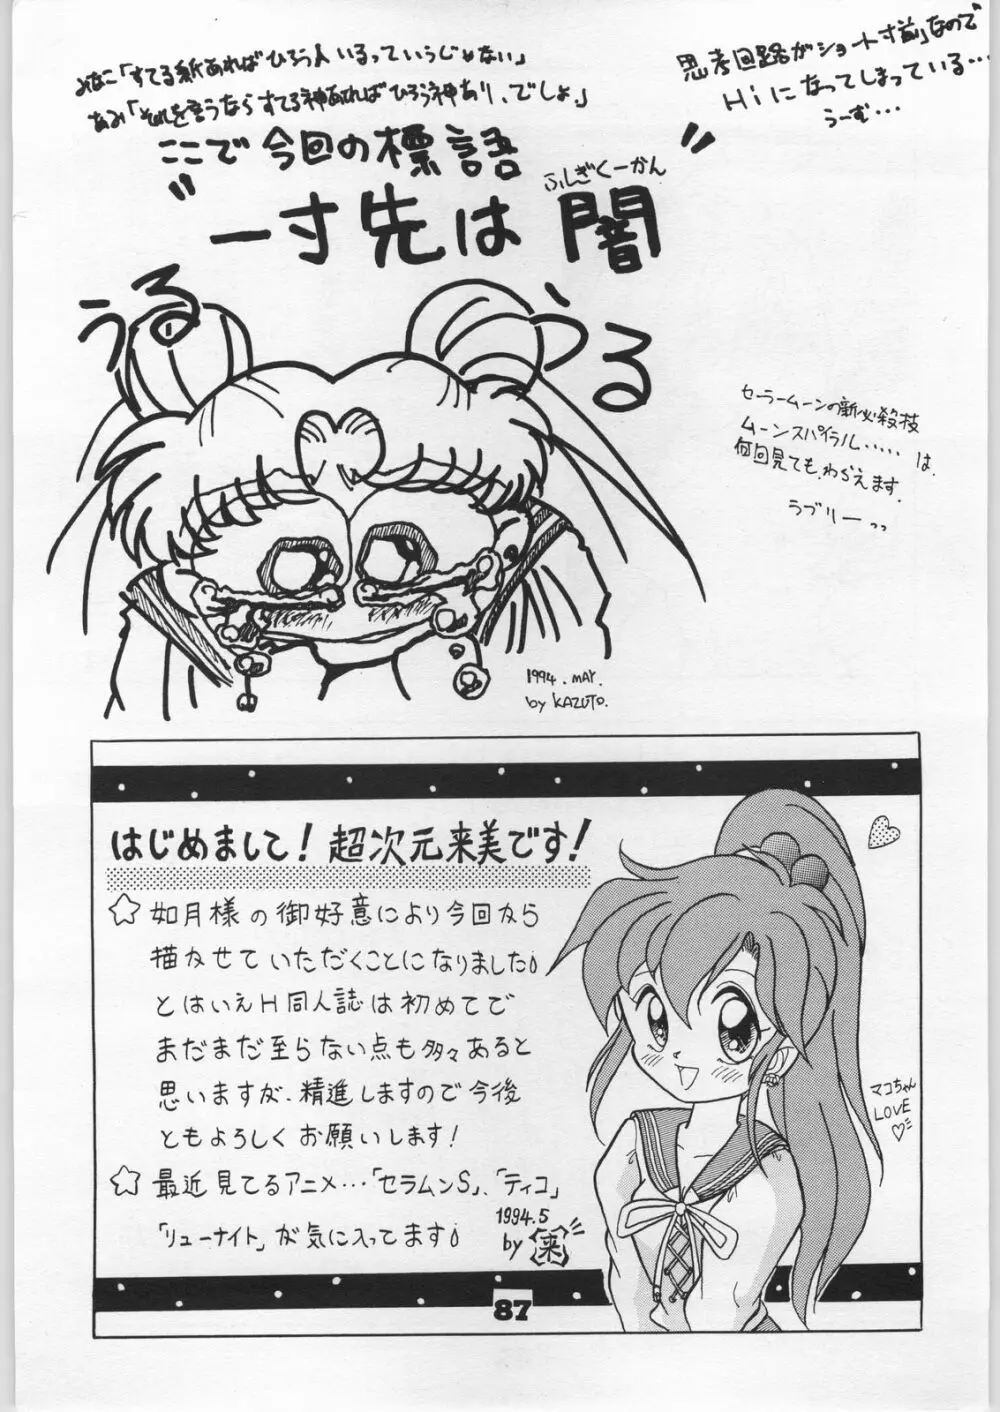 みなこ「すてる紙あればひろう人いるっていうじゃない」
あみ「それを言うならすてる神あればひろう神あり、でしょ。」
思考回路がショート寸前」なので
Hiになってしまっている…
うーむ…
ここで今回の標語
ふしぎくーかん
"一寸先は闇"
うる
うる
セーラームーンの新必殺技
ムーンスパイラル.....は、
何回見ても、わらえます。
ラブリーっっ
1994. MAY.
by KAZUTO.
はじめまして！超次元来美です！
☆如月様の御好意により今回から
描かせていただくことになりました
とはいえH同人誌は初めてで
まだまだ至らない点も多々あると
思いますが、精進しますので今後
ともよろしくお願いします！
☆最近見てるアニメ…「セラムンS」、「ティコ」
「リューナイト」が気に入ってます
1994.5
by 来
マコちゃん
LOVE♡
87